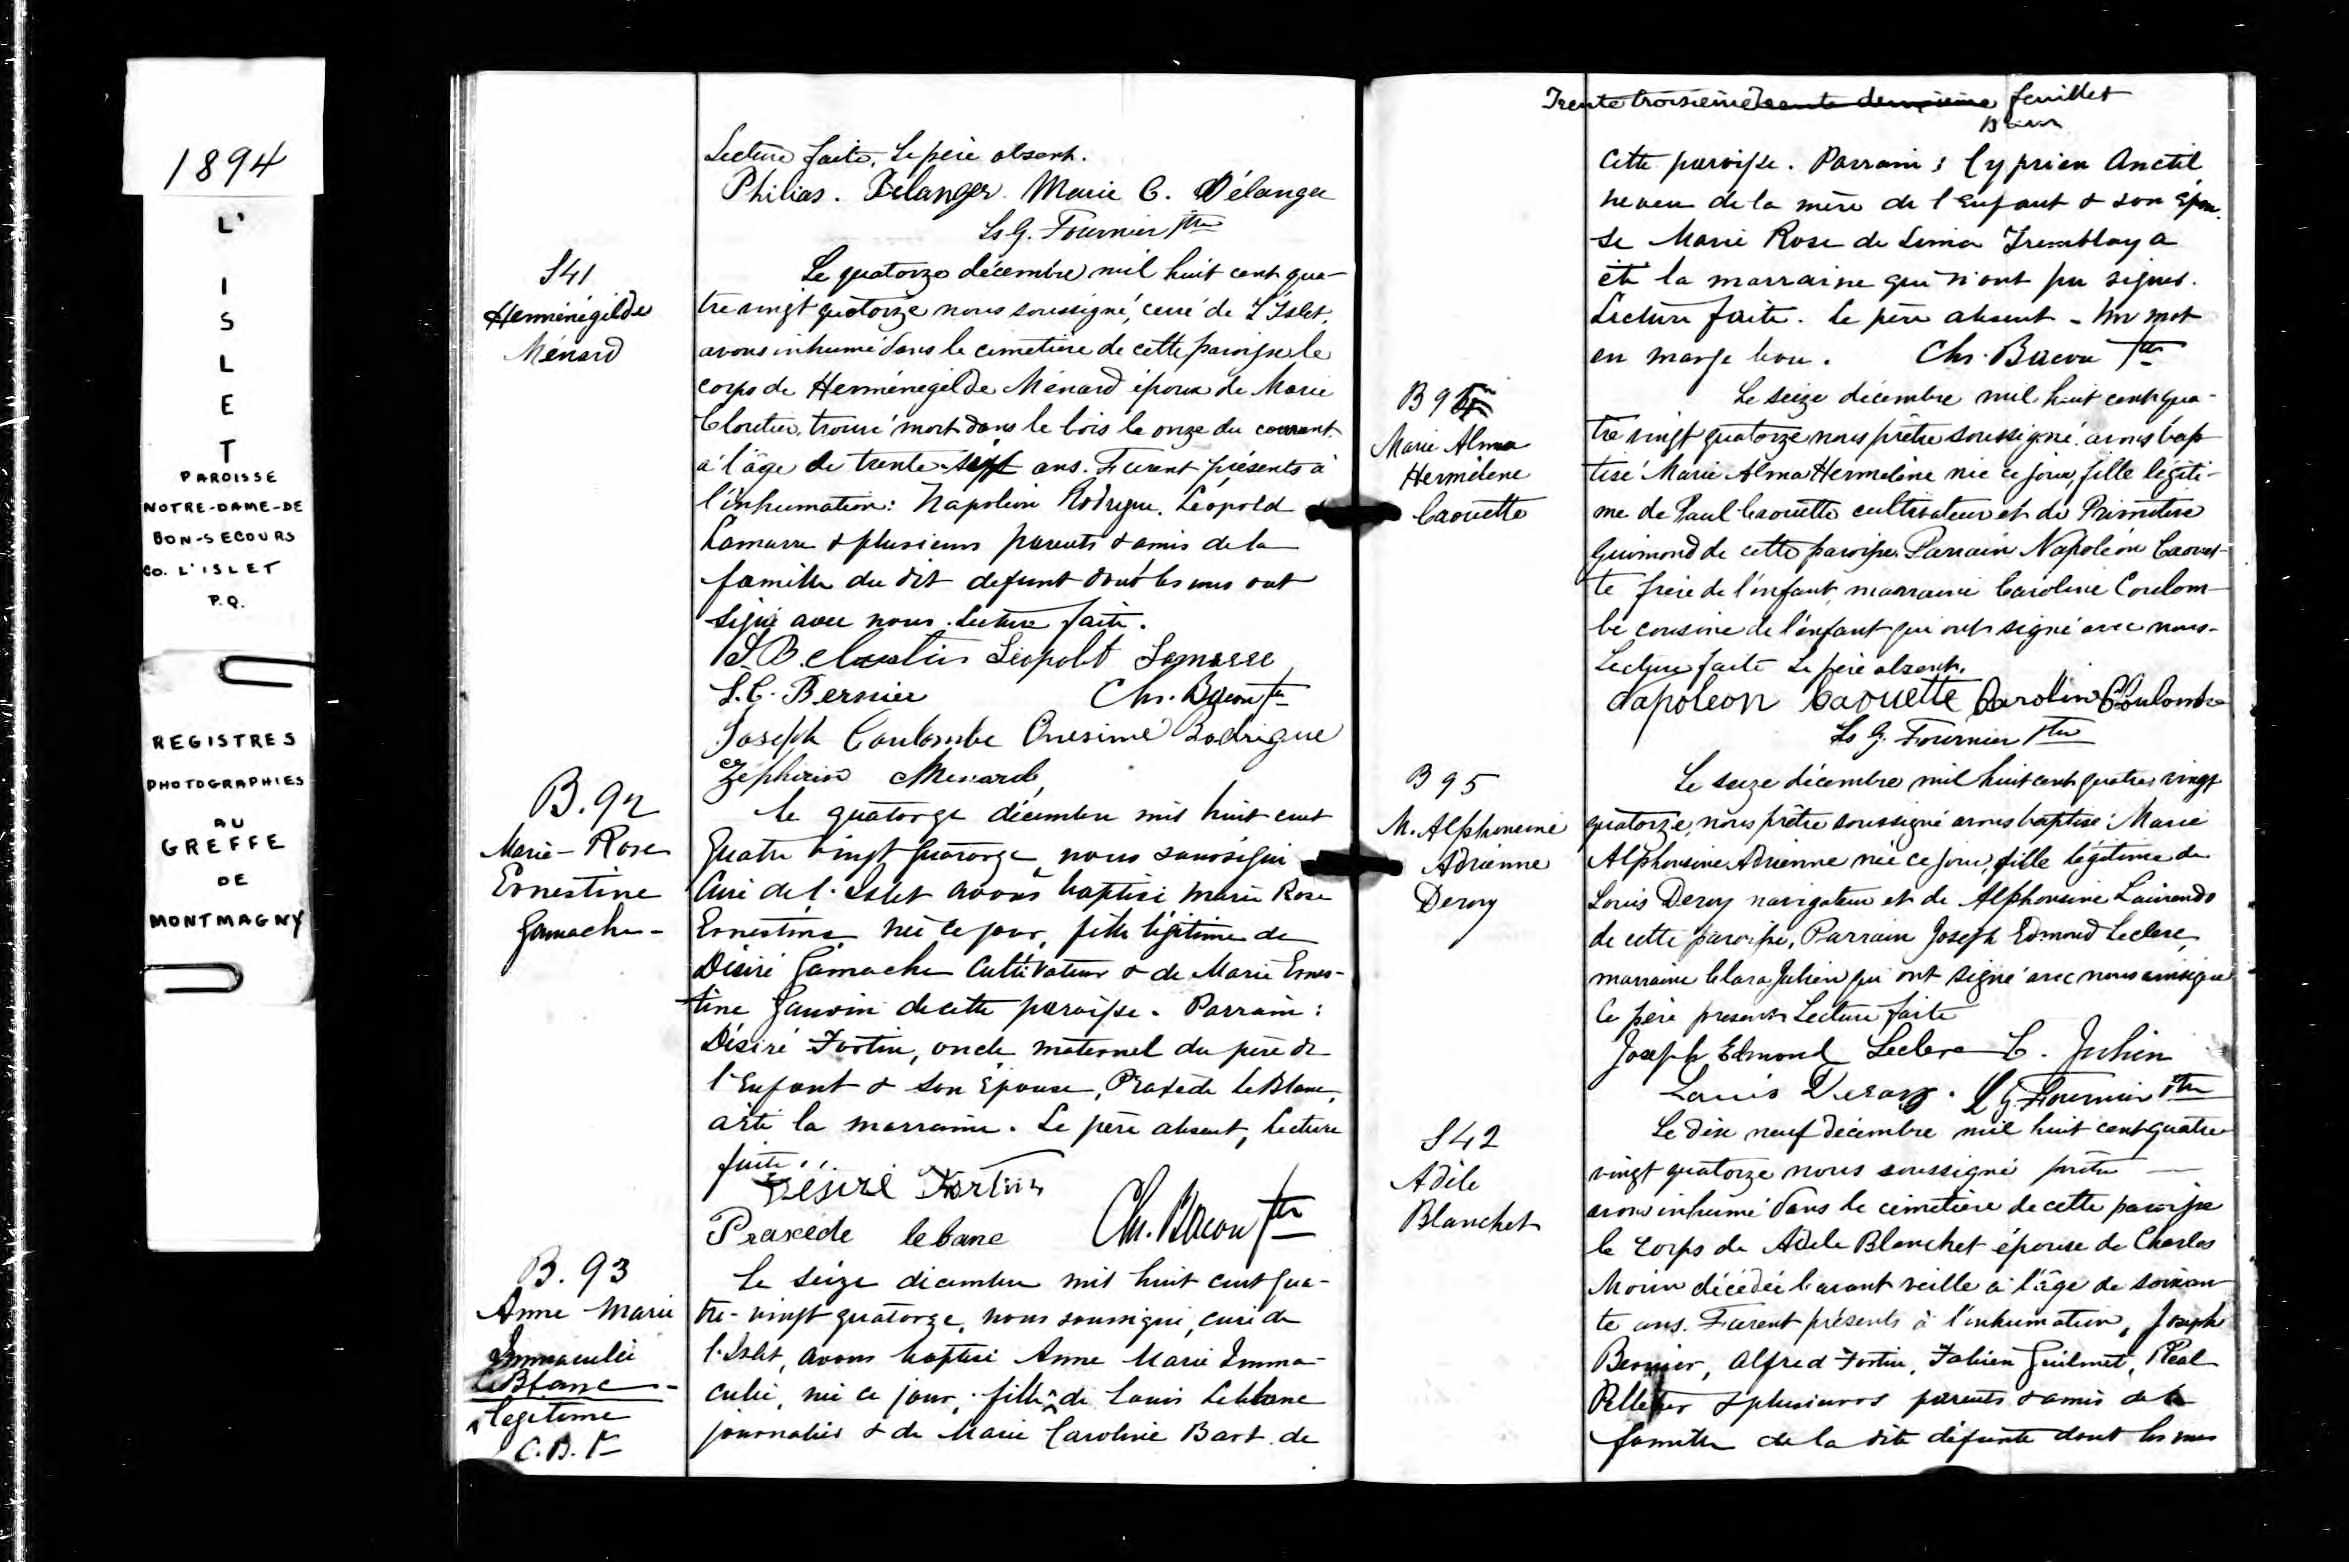 1894
L'
I
S
L
E
T
PAROISSE
NOTRE-DAME-DE
BON-SECOURS
CO. L'ISLET
P.Q.
REGISTRES
PHOTOGRAPHIES
AU
GREFFE
DE
MONTMAGNY
Lecture faite. Le père absent.
Philias. Bélanger. Marie C. Bélanger
Ls G. Fournier Ptre
S41
Herménégilde
Ménard
Le quatorze décembre mil huit cent qua-
tre vingt quatorze nous soussigné, curé de L'Islet,
avons inhumé dans le cimetière de cette paroisse le
corps de Herménégilde Ménard époux de Marie
Cloutier, trouvé mort dans le bois le onze du courant
à l'âge de trente-sept ans. Furent présents à
l'inhumation: Napoléon Rodrigue. Léopold
Lamarre & plusieurs parents & amis de la
famille du dit defunt dont les uns ont
signé avec nous. Lecture faite.
J. B. Cloutier Léopold Lamarre
L. C. Bernier Chs. Bacon Ptre
Joseph Coulombe Onesime Rodrigue
Zéphirin Menard
B. 92
Marie-Rose
Ernestine
Gamache-
Le quatorze décembre mil huit cent
Quatre vingt quatorze, nous soussigné
Curé de l'Islet avons baptisé Marie Rose
Ernestine née ce jour, fille légitime de
Désiré Gamache Cultivateur & de Marie Ernes-
tine Gauvin de cette paroisse. Parrain:
Désiré Fortin, oncle maternel du père de
l'Enfant & son Epouse, Praxède LeBlanc,
a été la marraine. Le père absent, lecture
faite..
Désiré Fortin
Praxède lebanc Ch. Bacon Ptr
B. 93
Anne Marie
Immaculée
LeBlanc-
légitime
C.B. Ptr
Le seize décembre mil huit cent qua-
tre-vingt quatorze, nous soussigné, curé de
l'Islet, avons baptisé Anne Marie Imma-
culée, née ce jour, fille de Louis Leblanc
journalier & de Marie Caroline Bart. de
Trente troisième trente deuxième feuillet
Bacon
cette paroisse. Parrain: Cyprien Anctil
neveu de la mère de l'Enfant & son Epou-
se Marie Rose de Lima Tremblay a
été la marraine qui n'ont pu signer.
Lecture faite. Le père absent - Un mot
en marge bon. Chs. Bacon Ptr
B 94
Marie Alma
Hermélene
Caouette
Le seize décembre mil huit cent qua-
tre vingt quatorze nous prêtre soussigné avons bap
tisé Marie Alma Hermélène née ce jour, fille légiti-
me de Paul Caouette cultivateur et de Primitive
Guimond de cette paroisse. Parrain Napoléon Caouet-
te frère de l'enfant, marraine Caroline Coulom-
be cousine de l'enfant qui ont signé avec nous-
Lecture faite Le père absent.
Napoleon Caouette Caroline Coulombe
Ls G. Fournier Ptre
B 95
M. Alphonsine
Adrienne
Deroy
Le seize décembre mil huit cent quatre vingt
quatorze, nous prêtre soussigné avons baptisé: Marie
Alphonsine Adrienne née ce jour, fille légitime de
Louis Deroy navigateur et de Alphonsine Laurendo
de cette paroisse, Parrain Joseph Edmond Leclerc,
marraine Clara Julien qui ont signé avec nous ainsi que
le père présent Lecture faite
Joseph Edmond Leclerc C. Julien
Louis Deroy. L G. Fournier Ptre
S42
Adèle
Blanchet
Le dix neuf décembre mil huit cent quatre
vingt quatorze nous soussigné prêtre —
avons inhumé dans le cimetière de cette paroisse
le corps de Adèle Blanchet épouse de Charles
Morin décédée l'avant veille à l'âge de soixan-
te ans. Furent présents à l'inhumation, Joseph
Bernier, Alfred Fortin, Fabien Guilmet, Réal
Pelletier & plusieurs parents & amis de la
famille de la dite défunte dont les uns